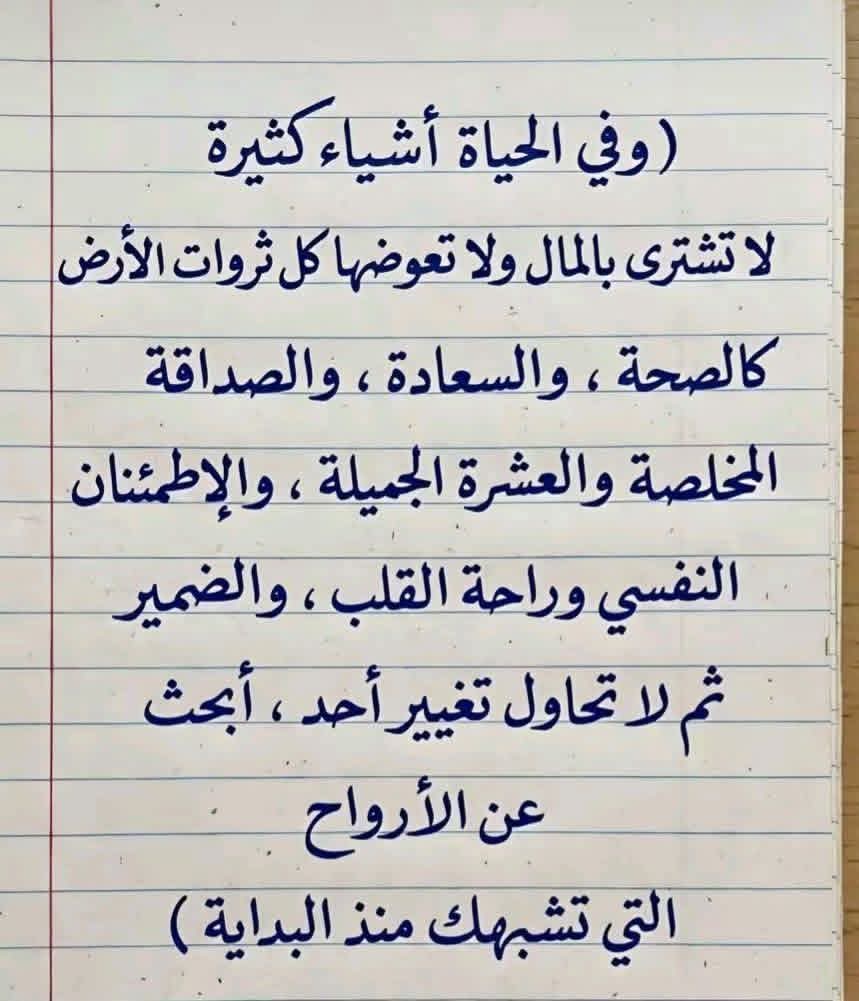 (وفي الحياة أشياء كثيرة
لا تشترى بالمال ولا تعوضها كل ثروات الأرض
كالصحة ، والسعادة ، والصداقة
المخلصة والعشرة الجميلة ، والإطمئنان
النفسي وراحة القلب ، والضمير
ثم لا تحاول تغيير أحد ، أبحث
عن الأرواح
التي تشبهك منذ البداية )